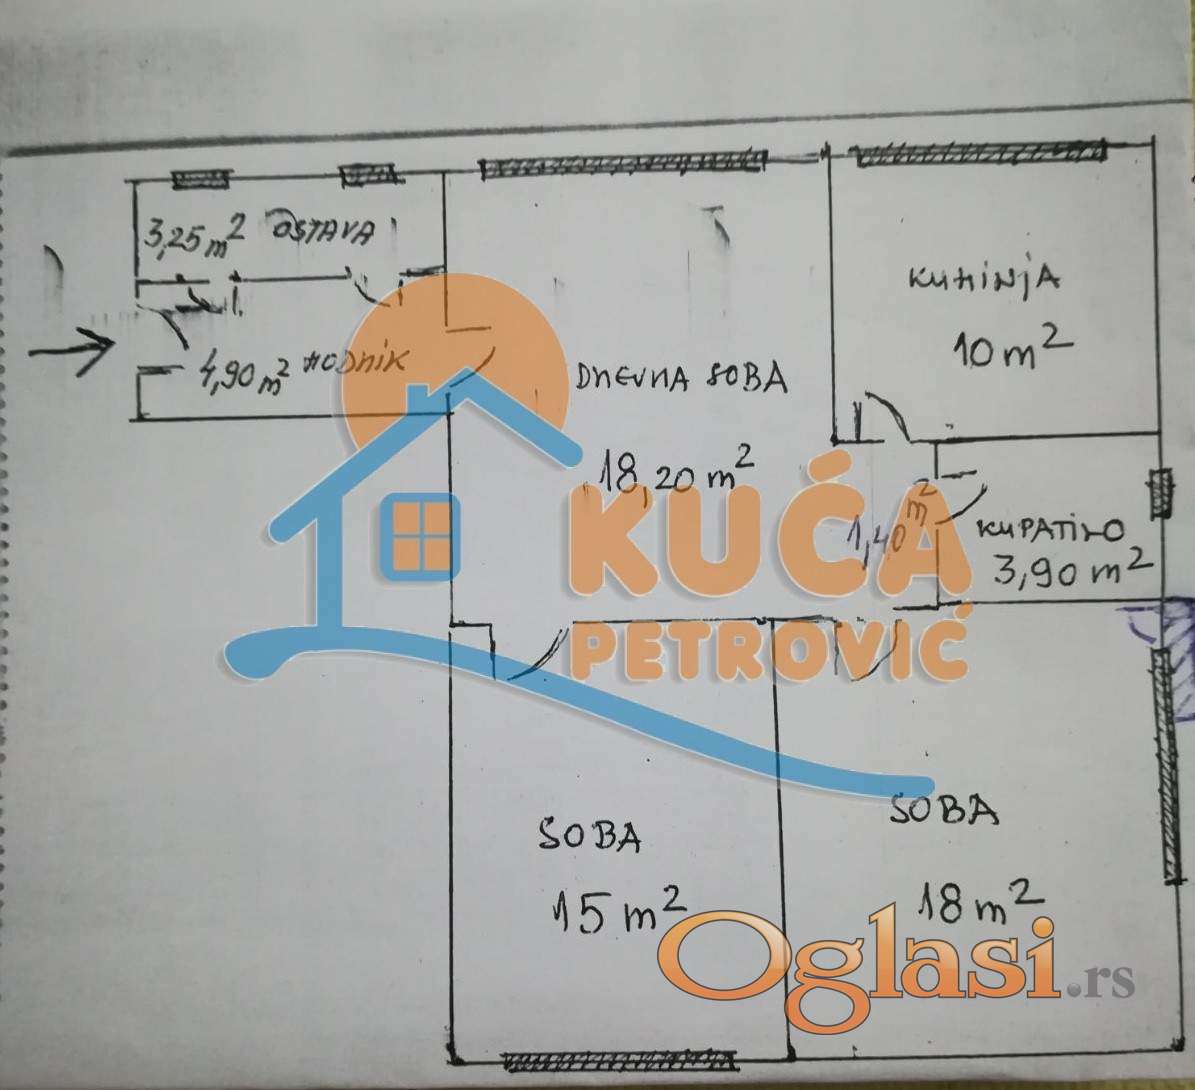 3,25 m² OSTAVA
4,90 m² HODNIK
DNEVNA SOBA
18,20 m²
KUHINJA
10 m²
1,40 m²
KUPATILO
3,90 m²
KUĆA
PETROVIĆ
SOBA
15 m²
SOBA
18 m²
Oglasi.rs